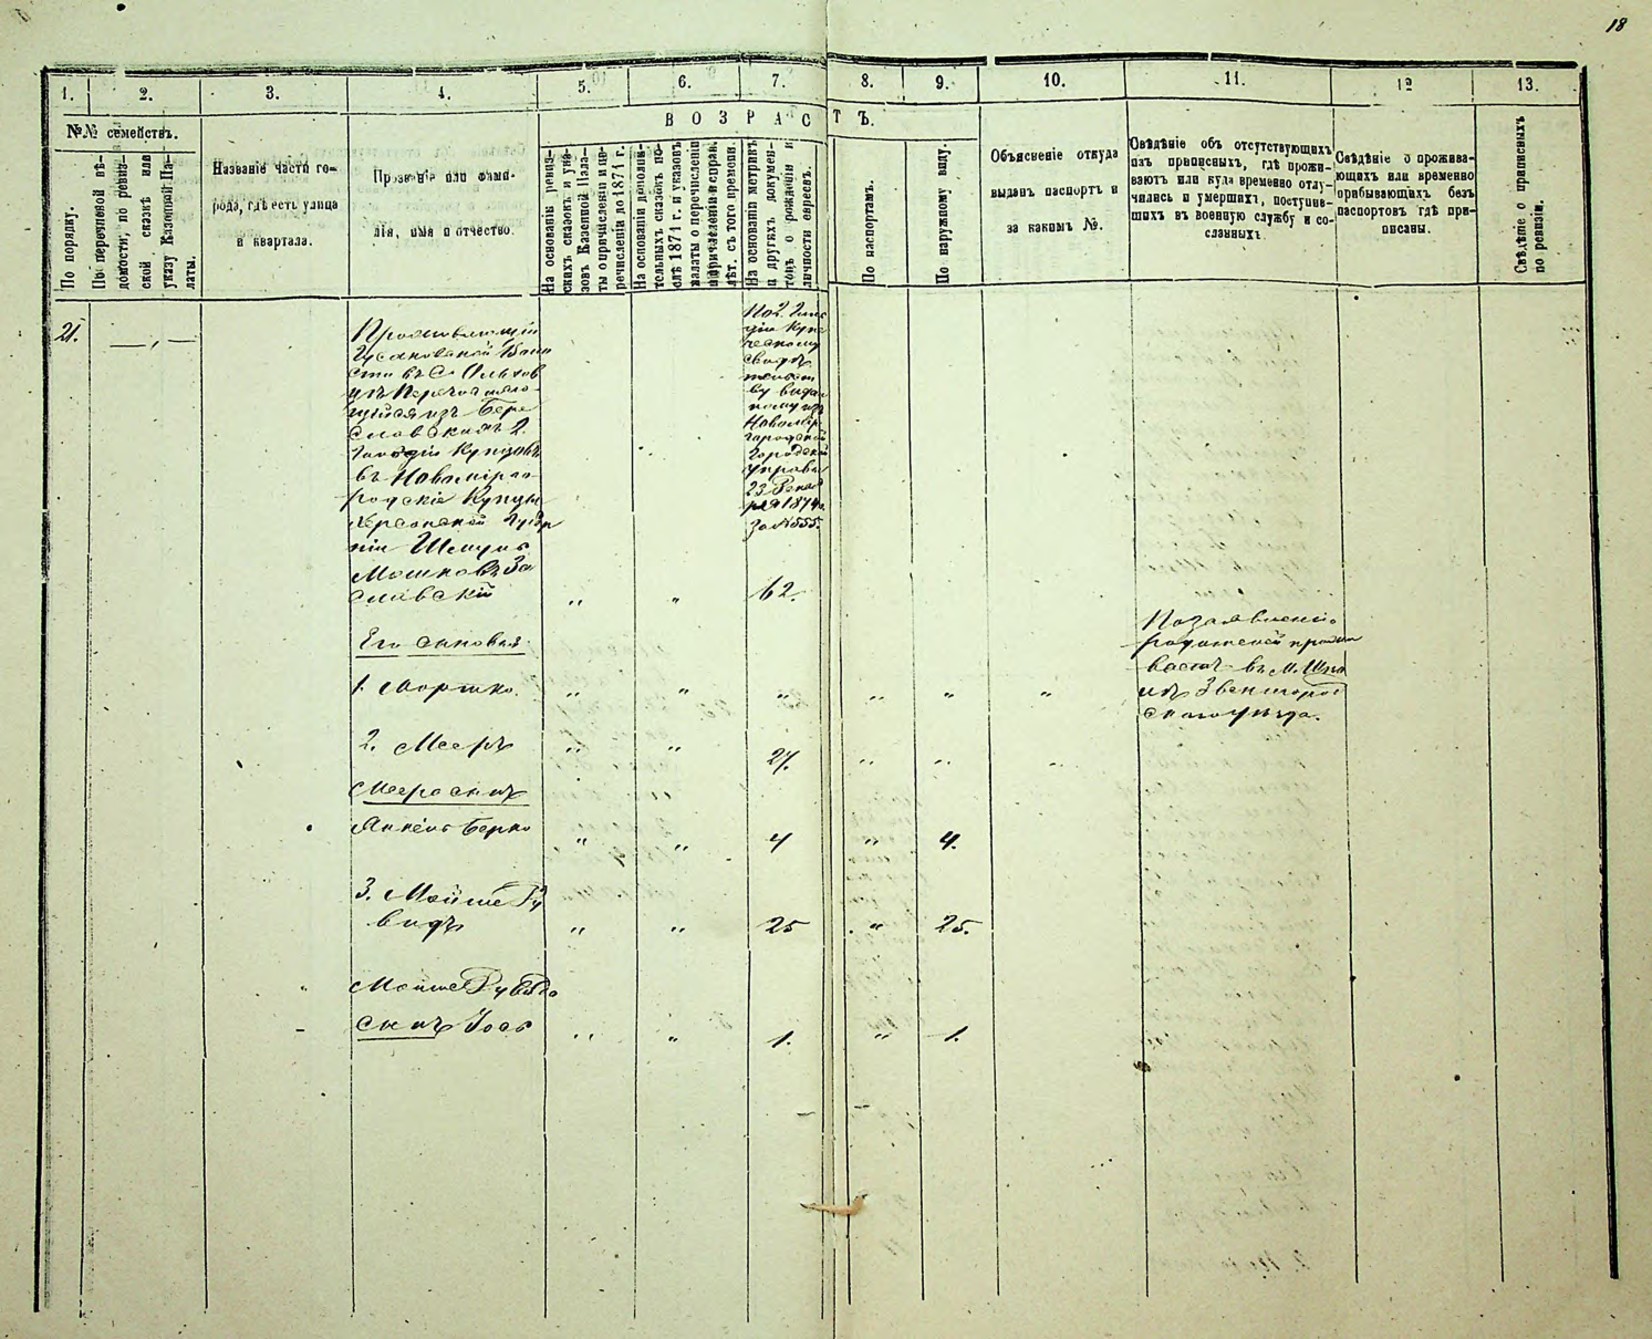 18
1. 2. 3. 4. 5. 6. 7. 8. 9. 10. 11. 12 13.
№№ семействъ.
ВОЗРАСТЪ.
По порядку.
По перечневой вѣ-
домости, по ревиз-
ской сказкѣ или
указу Казенной Па-
латы.
Названіе части го-
рода, гдѣ есть улица
и квартала.
Прозваніе или фами-
лія, имя и отчество.
На основаніи ревиз-
скихъ сказокъ и ука-
зовъ Казенной Пала-
ты о причисленіи и пе-
речисленіи до 1871 г.
На основаніи дополни-
тельныхъ сказокъ по-
слѣ 1871 г. и указовъ
палаты о перечисленіи
и причисленіи и справ.
лѣт. съ того времени.
На основаніи метрикъ
и другихъ докумен-
товъ о рожденіи и
личности евреевъ.
По паспортамъ.
По наружному виду.
Объясненіе откуда
выданъ паспортъ и
за какимъ №.
Свѣдѣніе объ отсутствующихъ
изъ приписныхъ, гдѣ прожи-
ваютъ или куда временно отлу-
чились и умершихъ, поступив-
шихъ въ военную службу и со-
сланныхъ.
Свѣдѣніе о прожива-
ющихъ или временно
прибывающихъ безъ
паспортовъ гдѣ при-
писаны.
Свѣдѣніе о приписныхъ
по ревизіи.
21. — „ —
Проживающій
въ С. Ольхов
цѣ Перечисляю
щійся изъ Бере
славскихъ 2.
Гильдіи Купцовъ
въ Новомирго-
родскіе Купцы
Херсонской Губер
ніи Шмуль
Мошковъ За
славскій „ „ 62.
По 2. Гиль
діи Купе
ческому
свидѣ
тельст
ву выдан
ному изъ
Новомир
городской
Городской
Управы
23 Янва
ря 1874 г.
за № 555.
Его сыновья
1. Мортко. „ „ „ „ „ „
По заявленію
родителей прожи
ваетъ въ М. Шпо
лѣ Звенигород
скаго уѣзда.
2. Мееръ „ „ 27. „ „ „
Меера сынъ
Янкель Берко „ „ 4 „ 4.
3. Мойше Ру
видъ „ „ 25 „ 25.
Мойше Рувида
сынъ Іось „ „ 1. „ 1.